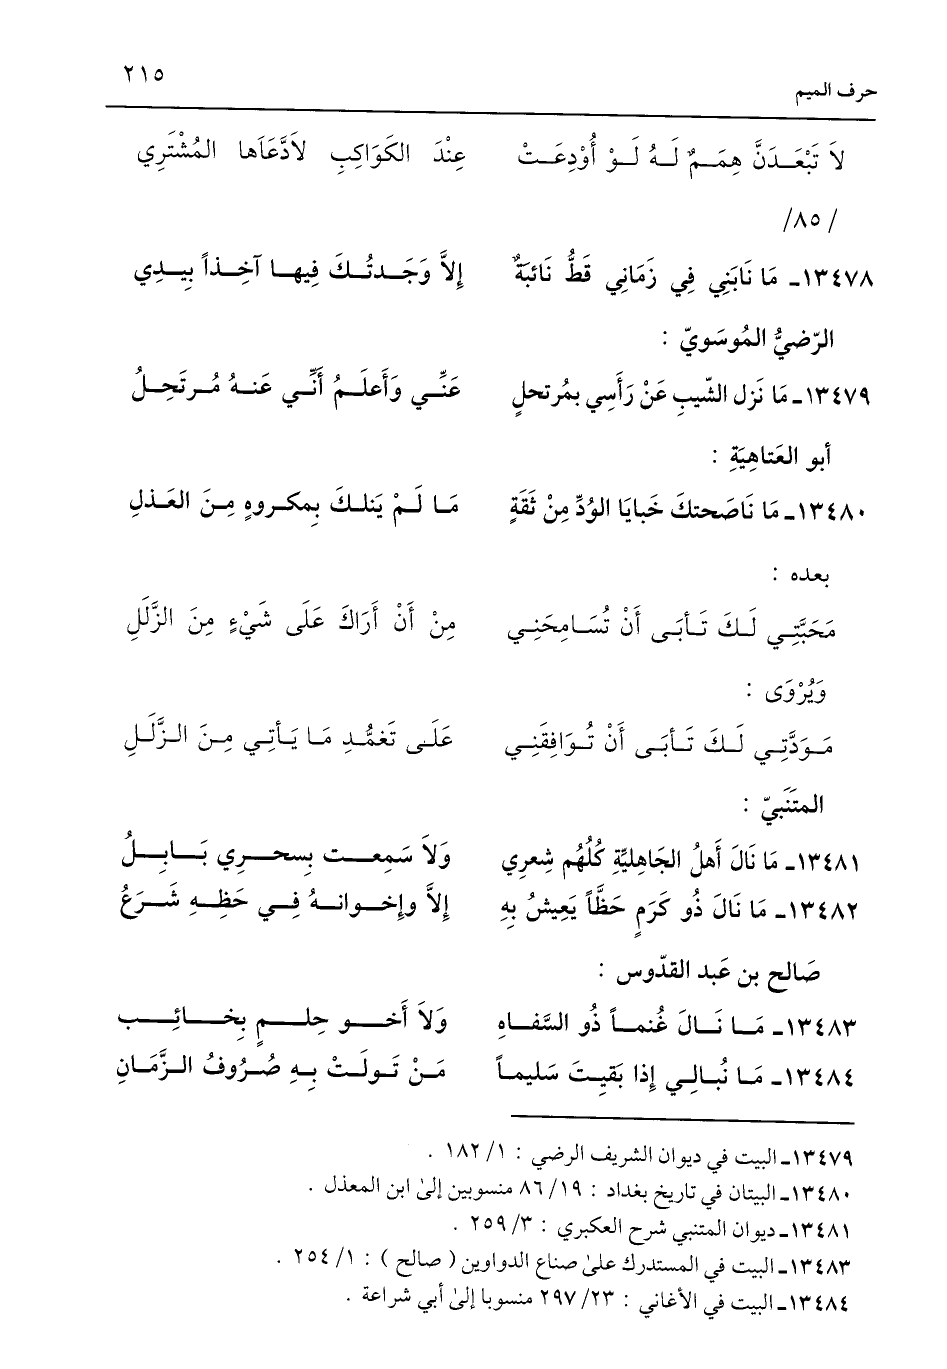 ٢١٥
حرف الميم
لاَ تَبْعَـدَنَّ هِمَـمٌ لَـهُ لَـوْ أُوْدِعَـتْ عِنْدَ الكَوَاكِبِ لاَدَّعَاَها المُشْتَرِي
/٨٥/
١٣٤٧٨ـ مَا نَابَنِي فِي زَمَانِي قَطُّ نَائبَةٌ إِلاَّ وَجَـدتُـكَ فِيهـا آخِـذاً بِيـدِي
الرّضيُّ المُوسَويّ :
١٣٤٧٩ـ مَا نَزل الشّيبِ عَنْ رَأَسِي بمُرتحلٍ عَنِّـي وَأَعلَـمُ أَنِّـي عَنـهُ مُـرتَحِـلُ
أبو العَتاهِيَةِ :
١٣٤٨٠ـ مَا نَاصَحتكَ خَبايَا الوُدِّ مِنْ ثَقَةٍ مَـا لَـمْ يَنلـكَ بِمكـروهٍ مِـنَ العَـذلِ
بعده :
مَحَبَّتِـي لَـكَ تَـأبَـى أَنْ تُسَـامِحَنِـي مِنْ أَنْ أَرَاكَ عَلَى شَيْءٍ مِنَ الزَّلَلِ
وَيُرْوَى :
مَـوَدَّتِـي لَـكَ تَـأبَـى أَنْ تُـوَافِقَنِـي عَلَـى تَغمُّـدِ مَـا يَـأتِـي مِـنَ الـزَّلَـلِ
المتَنَبيّ :
١٣٤٨١ـ مَا نَالَ أَهلُ الجَاهليَّةِ كُلُهُم شِعرِي وَلاَ سَمِعـت بِسحـرِي بَـابِـلُ
١٣٤٨٢ـ مَا نَالَ ذُو كَرَمٍ حَظَّاً يَعِيشُ بِهِ إِلاَّ وإِخـوانـهُ فِـي حَظِـهِ شَـرَعُ
صَالح بن عَبد القدّوس :
١٣٤٨٣ـ مَـا نَـالَ غُنمـاً ذُو السَّفـاهِ وَلاَ أَخـو حِلـمٍ بِخـائِـبِ
١٣٤٨٤ـ مَـا نُبـالِـي إِذا بَقيِـتَ سَليمـاً مَـنْ تَـولَـتْ بِـهِ صُـرُوفُ الـزَّمَـانِ
١٣٤٧٩ـ البيت في ديوان الشريف الرضي : ١/ ١٨٢ .
١٣٤٨٠ـ البيتان في تاريخ بغداد : ١٩/ ٨٦ منسوبين إلىٰ ابن المعذل .
١٣٤٨١ـ ديوان المتنبي شرح العكبري : ٣/ ٢٥٩ .
١٣٤٨٣ـ البيت في المستدرك علىٰ صناع الدواوين ( صالح ) : ١/ ٢٥٤ .
١٣٤٨٤ـ البيت في الأغاني : ٢٣/ ٢٩٧ منسوبا إلىٰ أبي شراعة .